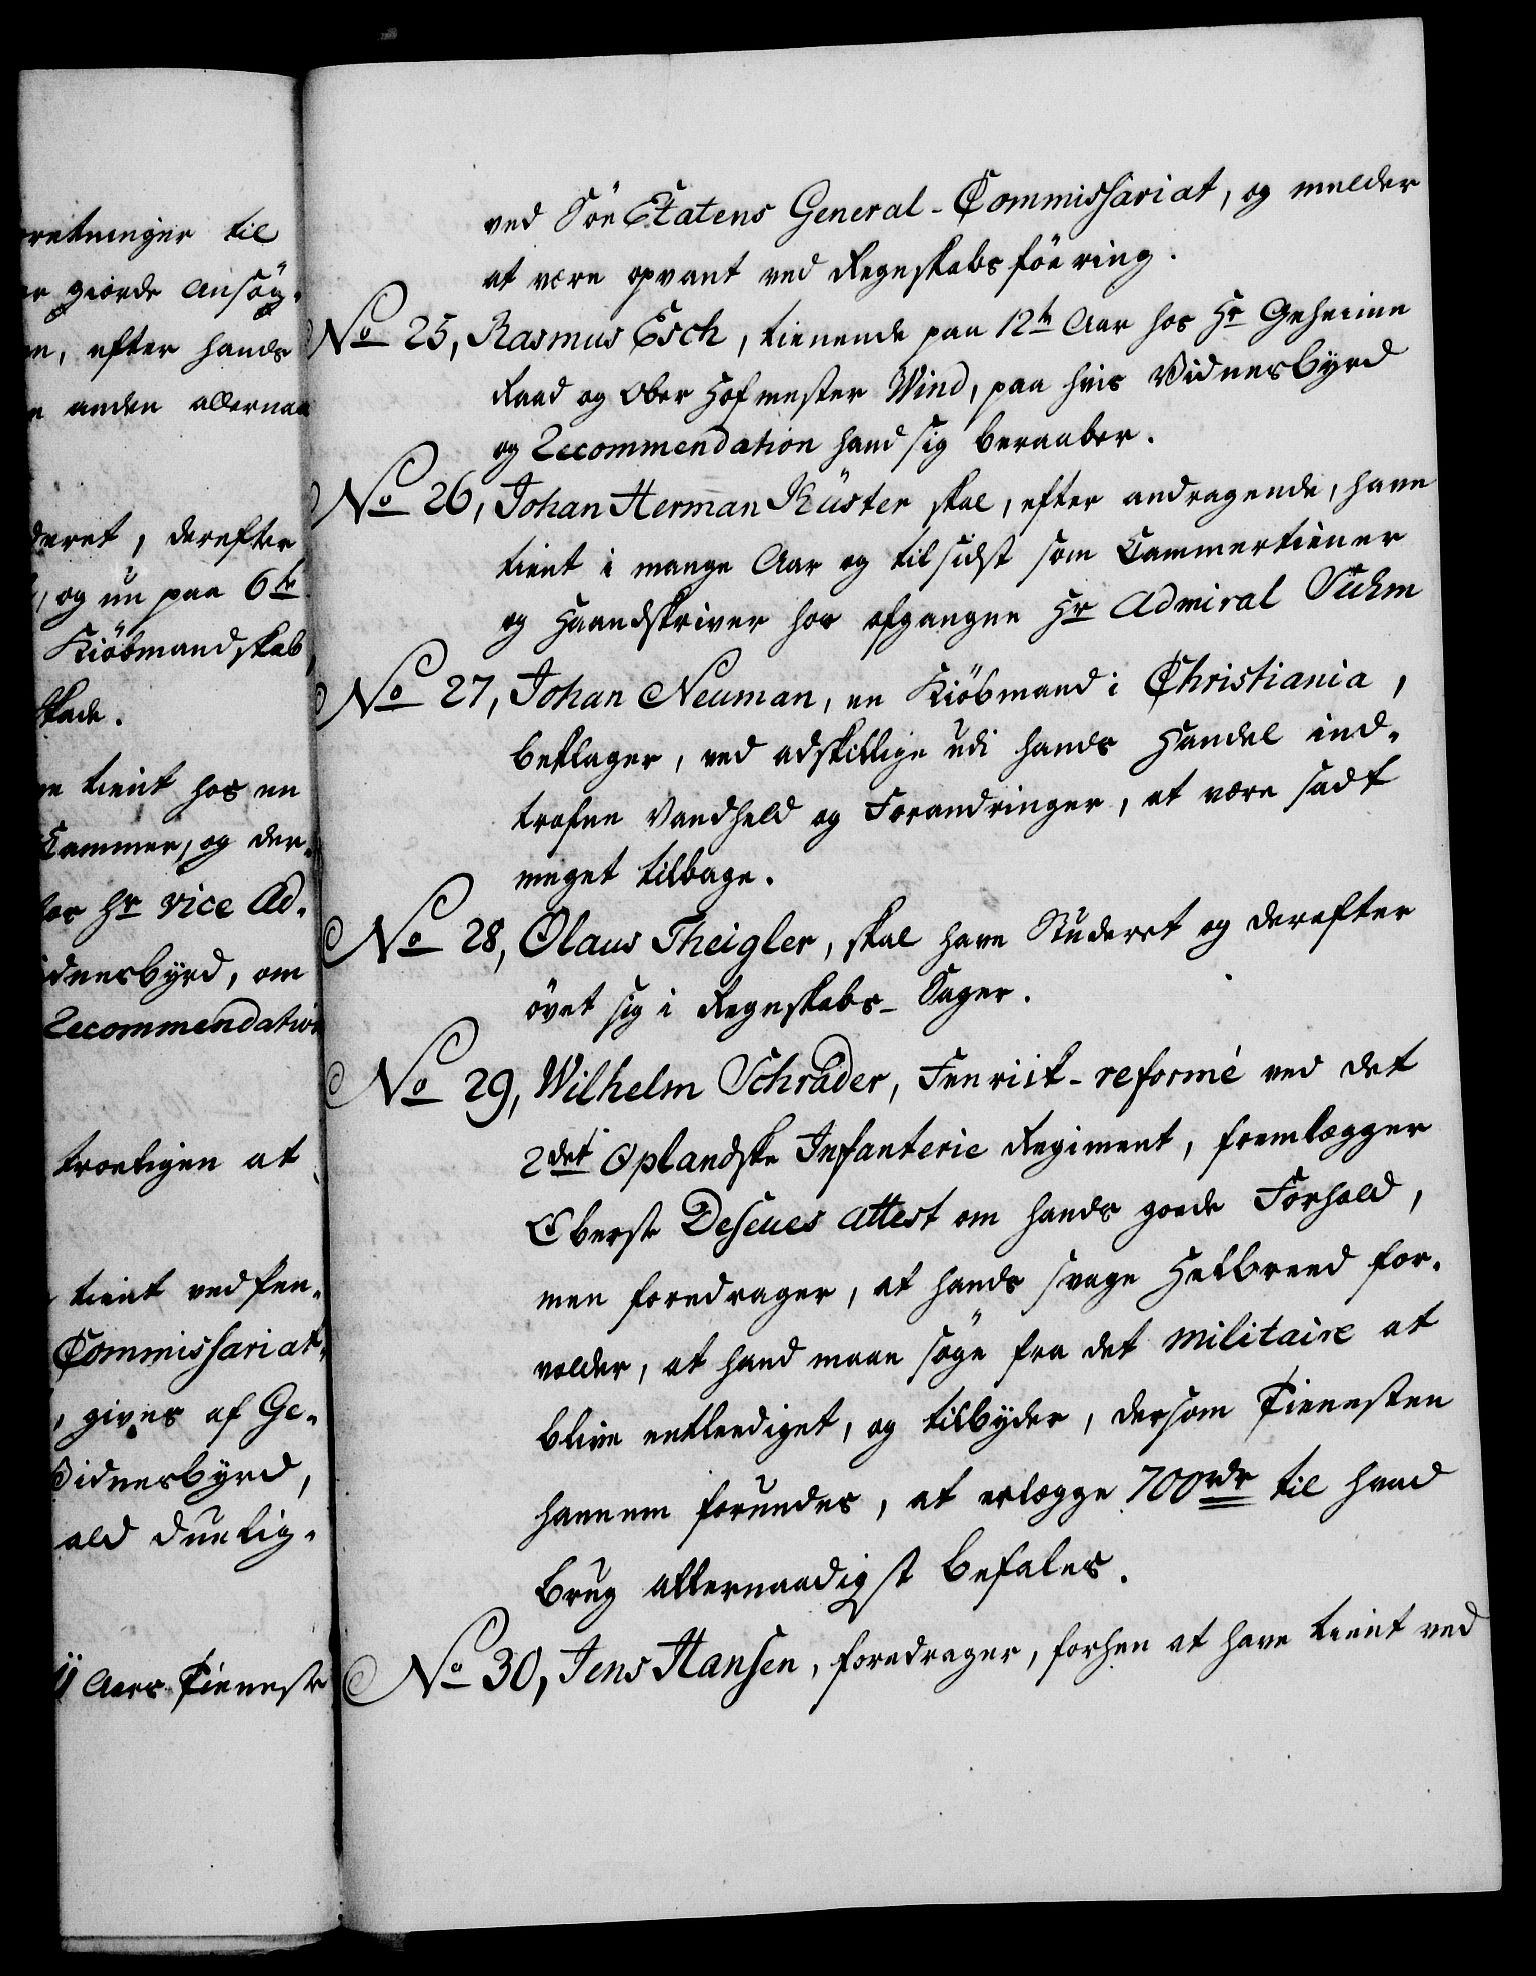 retninger til
giorde Ansög-
, efter hands
anden allernaa
deret, derefter
, og nu paa 6te
Kiöbmandskab,
skade.
tient hos en
Cammer, og der-
hos Hr Vice Ad-
idnesbyrd, om
Recommendation
troeligen at
tient ved sen-
Commissariat-
, gives af Ge-
Vidnesbyrd,
ald duelig-
Aars Tieneste
ved Söe Etatens General-Commissariat, og melder
at være opvant ved Regnskabs föering.
No 25, Rasmus Esch, tienende paa 12te Aar hos Hr Geheime
Raad og Ober Hofmester Wind, paa hvis Vidnesbyrd
og Recommendation hand sig beraaber.
No 26, Johan Herman Küster skal, efter andragende, have
tient i mange Aar og til sidst som Cammertiener
og Haandskriver hos afgangne Hr Admiral Suhm
No 27, Johan Neuman, en Kiöbmand i Christiania,
beklager, ved adskillige udi hands Handel ind-
trafne Vandheld og Forandringer, at være sadt
meget tilbage.
No 28, Olaus Theigler, skal have Studeret og derefter
övet sig i Regnskabs-Sager.
No 29, Wilhelm Schrader, Fenrick-reformé ved det
2det Oplandske Infanterie Regiment, fremlægger
Oberste Deseues Attest om hands goede Forhold,
men foredrager, at hands svage Helbreed for-
volder, at hand maae söge fra det militaire at
blive entlediget, og tilbyder, dersom Tienesten
hannem forundes, at erlægge 700rdr til hvad
brug allernaadigst befales.
No 30, Jens Hansen, foredrager, forhen at have tient ved